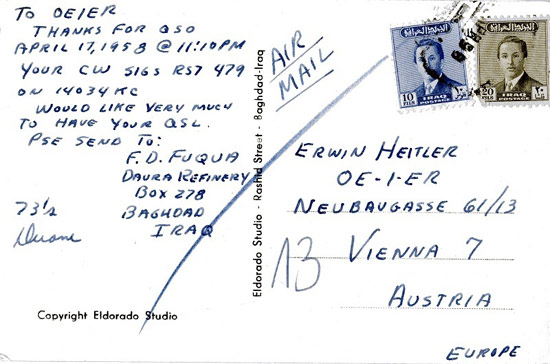 To OE1ER
THANKS FOR QSO
APRIL 17, 1958 @ 11:10PM
YOUR CW SIGS RST 479
ON 14034 KC
WOULD LIKE VERY MUCH
TO HAVE YOUR QSL.
PSE SEND TO:
F.D. FUQUA
DAURA REFINERY
BOX 278
BAGHDAD
IRAQ
73'S
Duane
Copyright Eldorado Studio
Eldorado Studio - Rashid Street - Baghdad-Iraq
AIR
MAIL
10
FILS
IRAQ
POSTAGE
20
FILS
IRAQ
POSTAGE
ERWIN HEITLER
OE-1-ER
NEUBAUGASSE 61/13
VIENNA 7
AUSTRIA
EUROPE